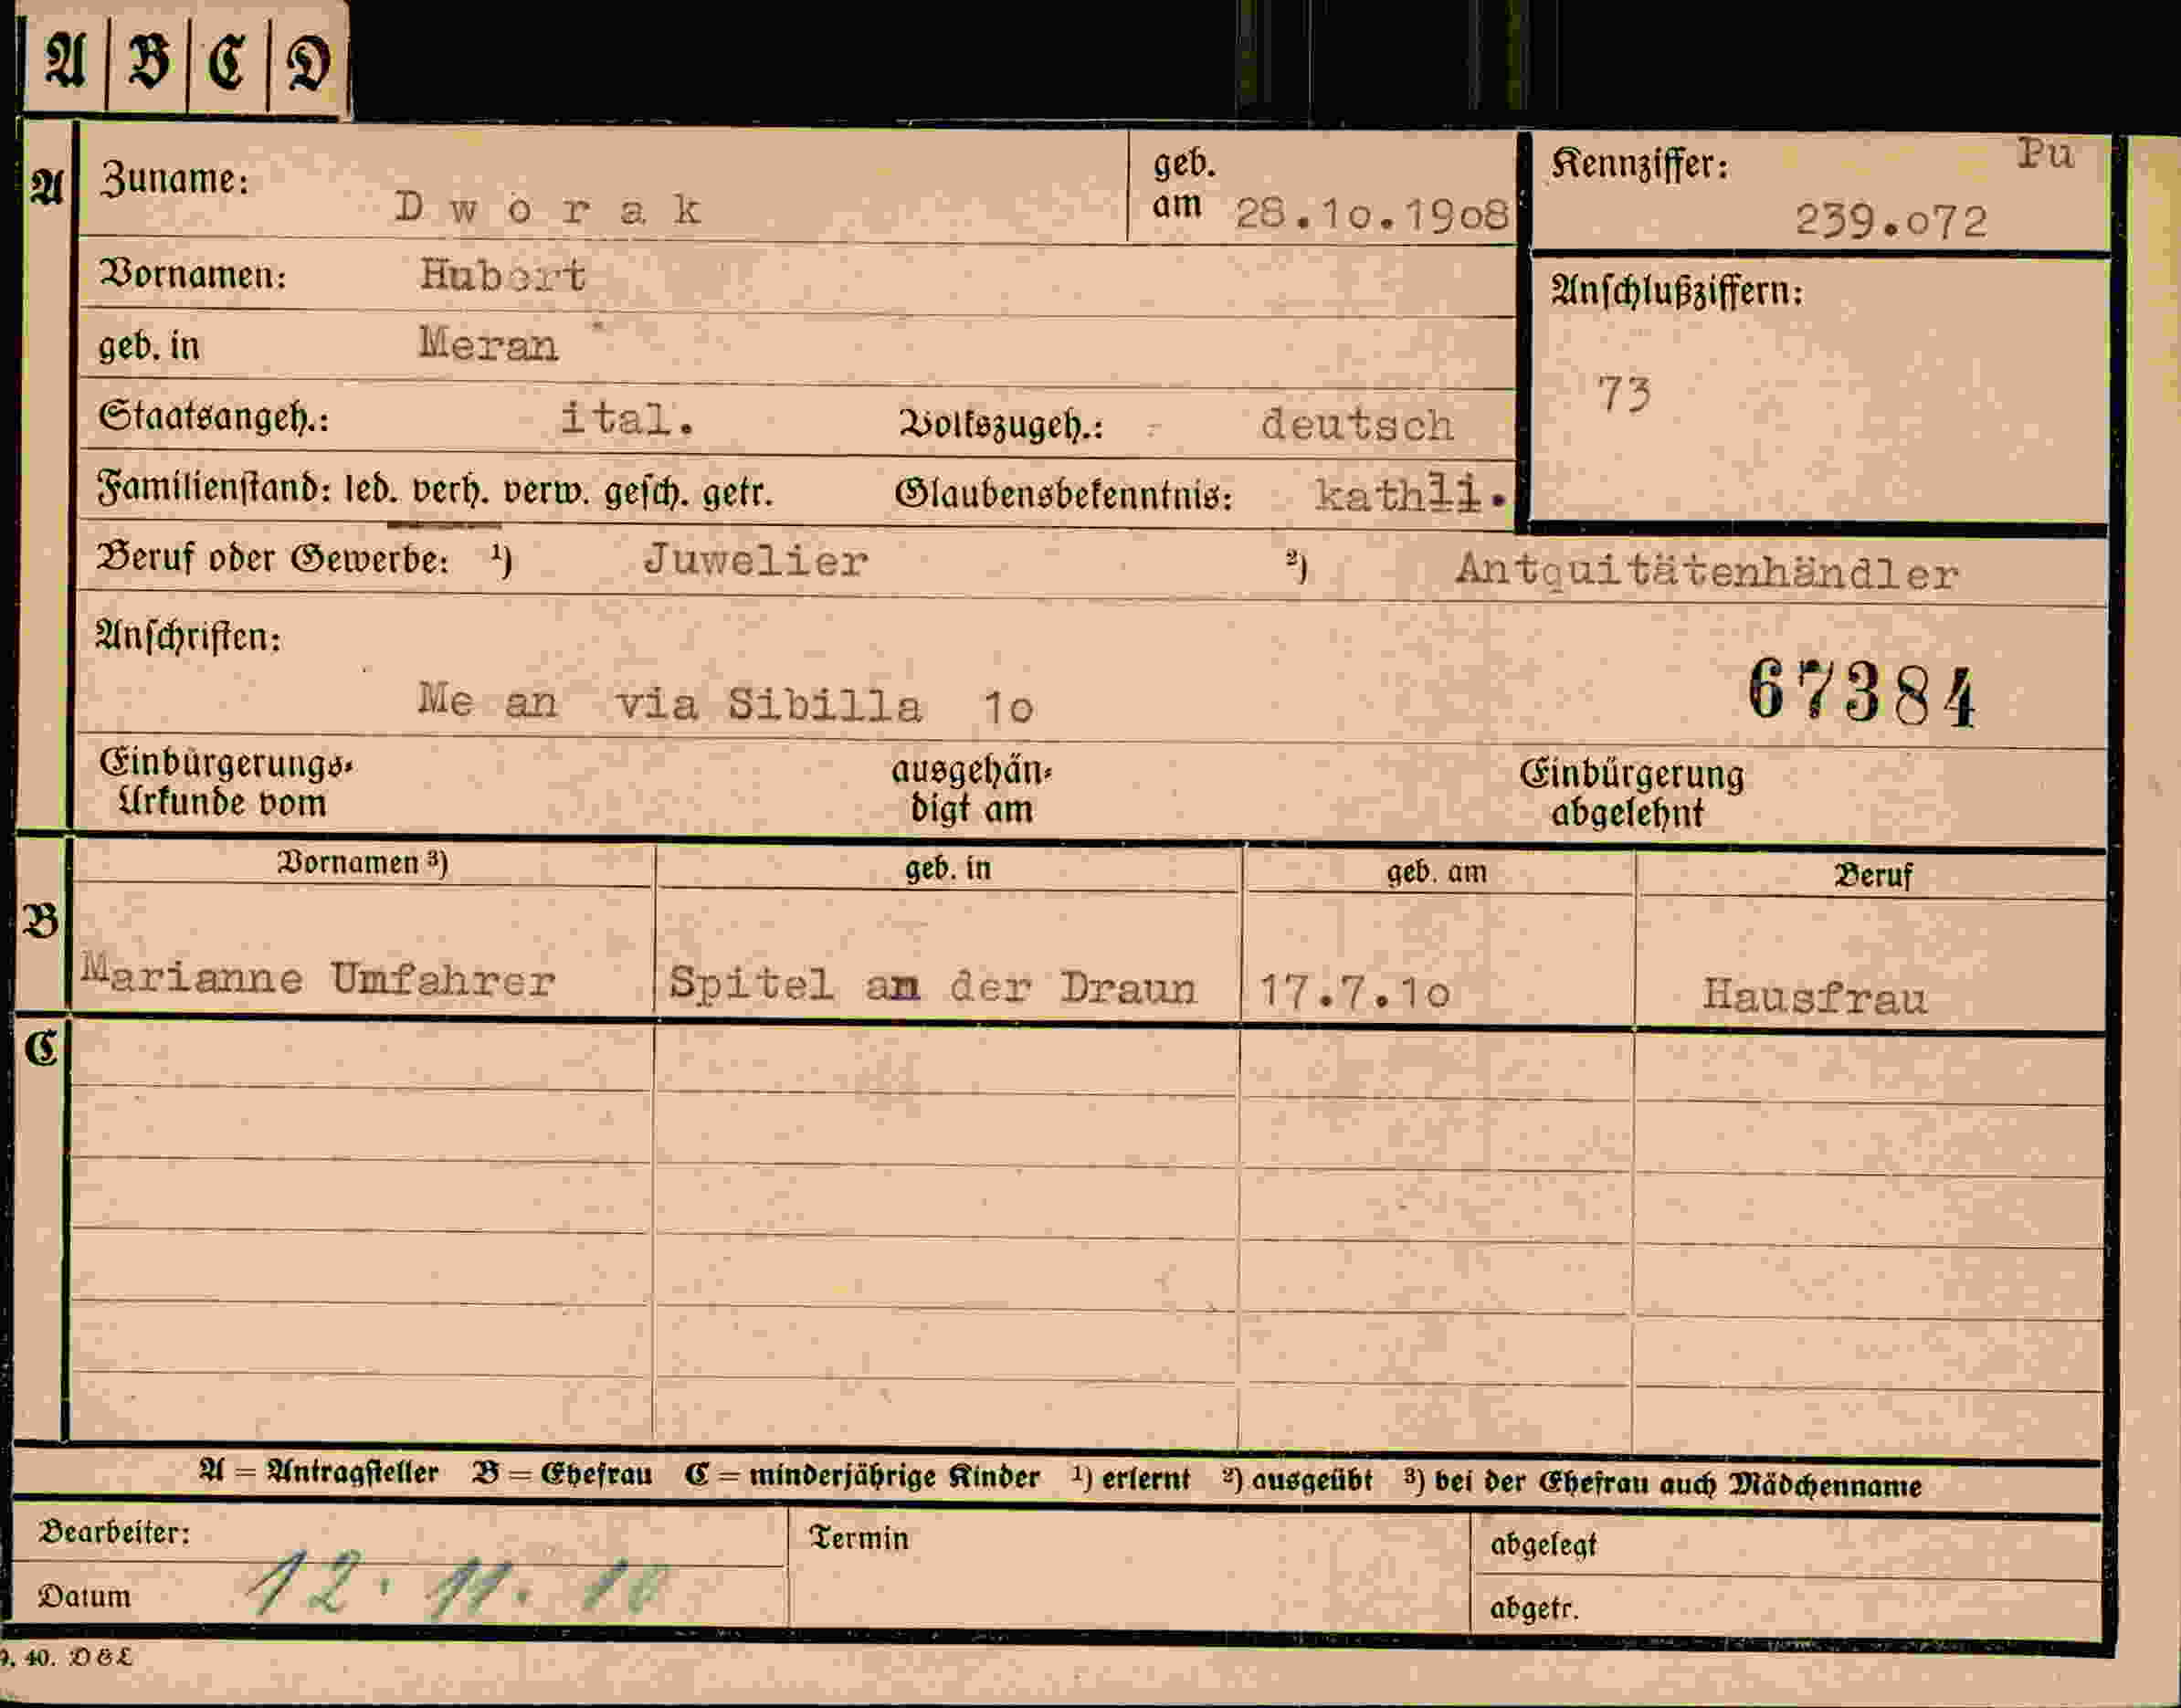 A B C D
A Zuname: Dworak geb. am 28.10.1908 Kennziffer: Pu 239.072
Vornamen: Hubert
Anschlußziffern:
geb. in Meran
73
Staatsangeh.: ital. Volkszugeh.: deutsch
Familienstand: led. verh. verw. gesch. getr. Glaubensbekenntnis: kathli.
Beruf oder Gewerbe: ¹) Juwelier ²) Antquitätenhändler
Anschriften:
Me an via Sibilla 10 67384
Einbürgerungs- ausgehän- Einbürgerung
Urkunde vom digt am abgelehnt
Vornamen ³) geb. in geb. am Beruf
B
Marianne Umfahrer Spitel an der Draun 17.7.10 Hausfrau
C
A = Antragsteller B = Ehefrau C = minderjährige Kinder ¹) erlernt ²) ausgeübt ³) bei der Ehefrau auch Mädchenname
Bearbeiter: Termin abgelegt
Datum 12. 11. abgetr.
9. 40. D&L